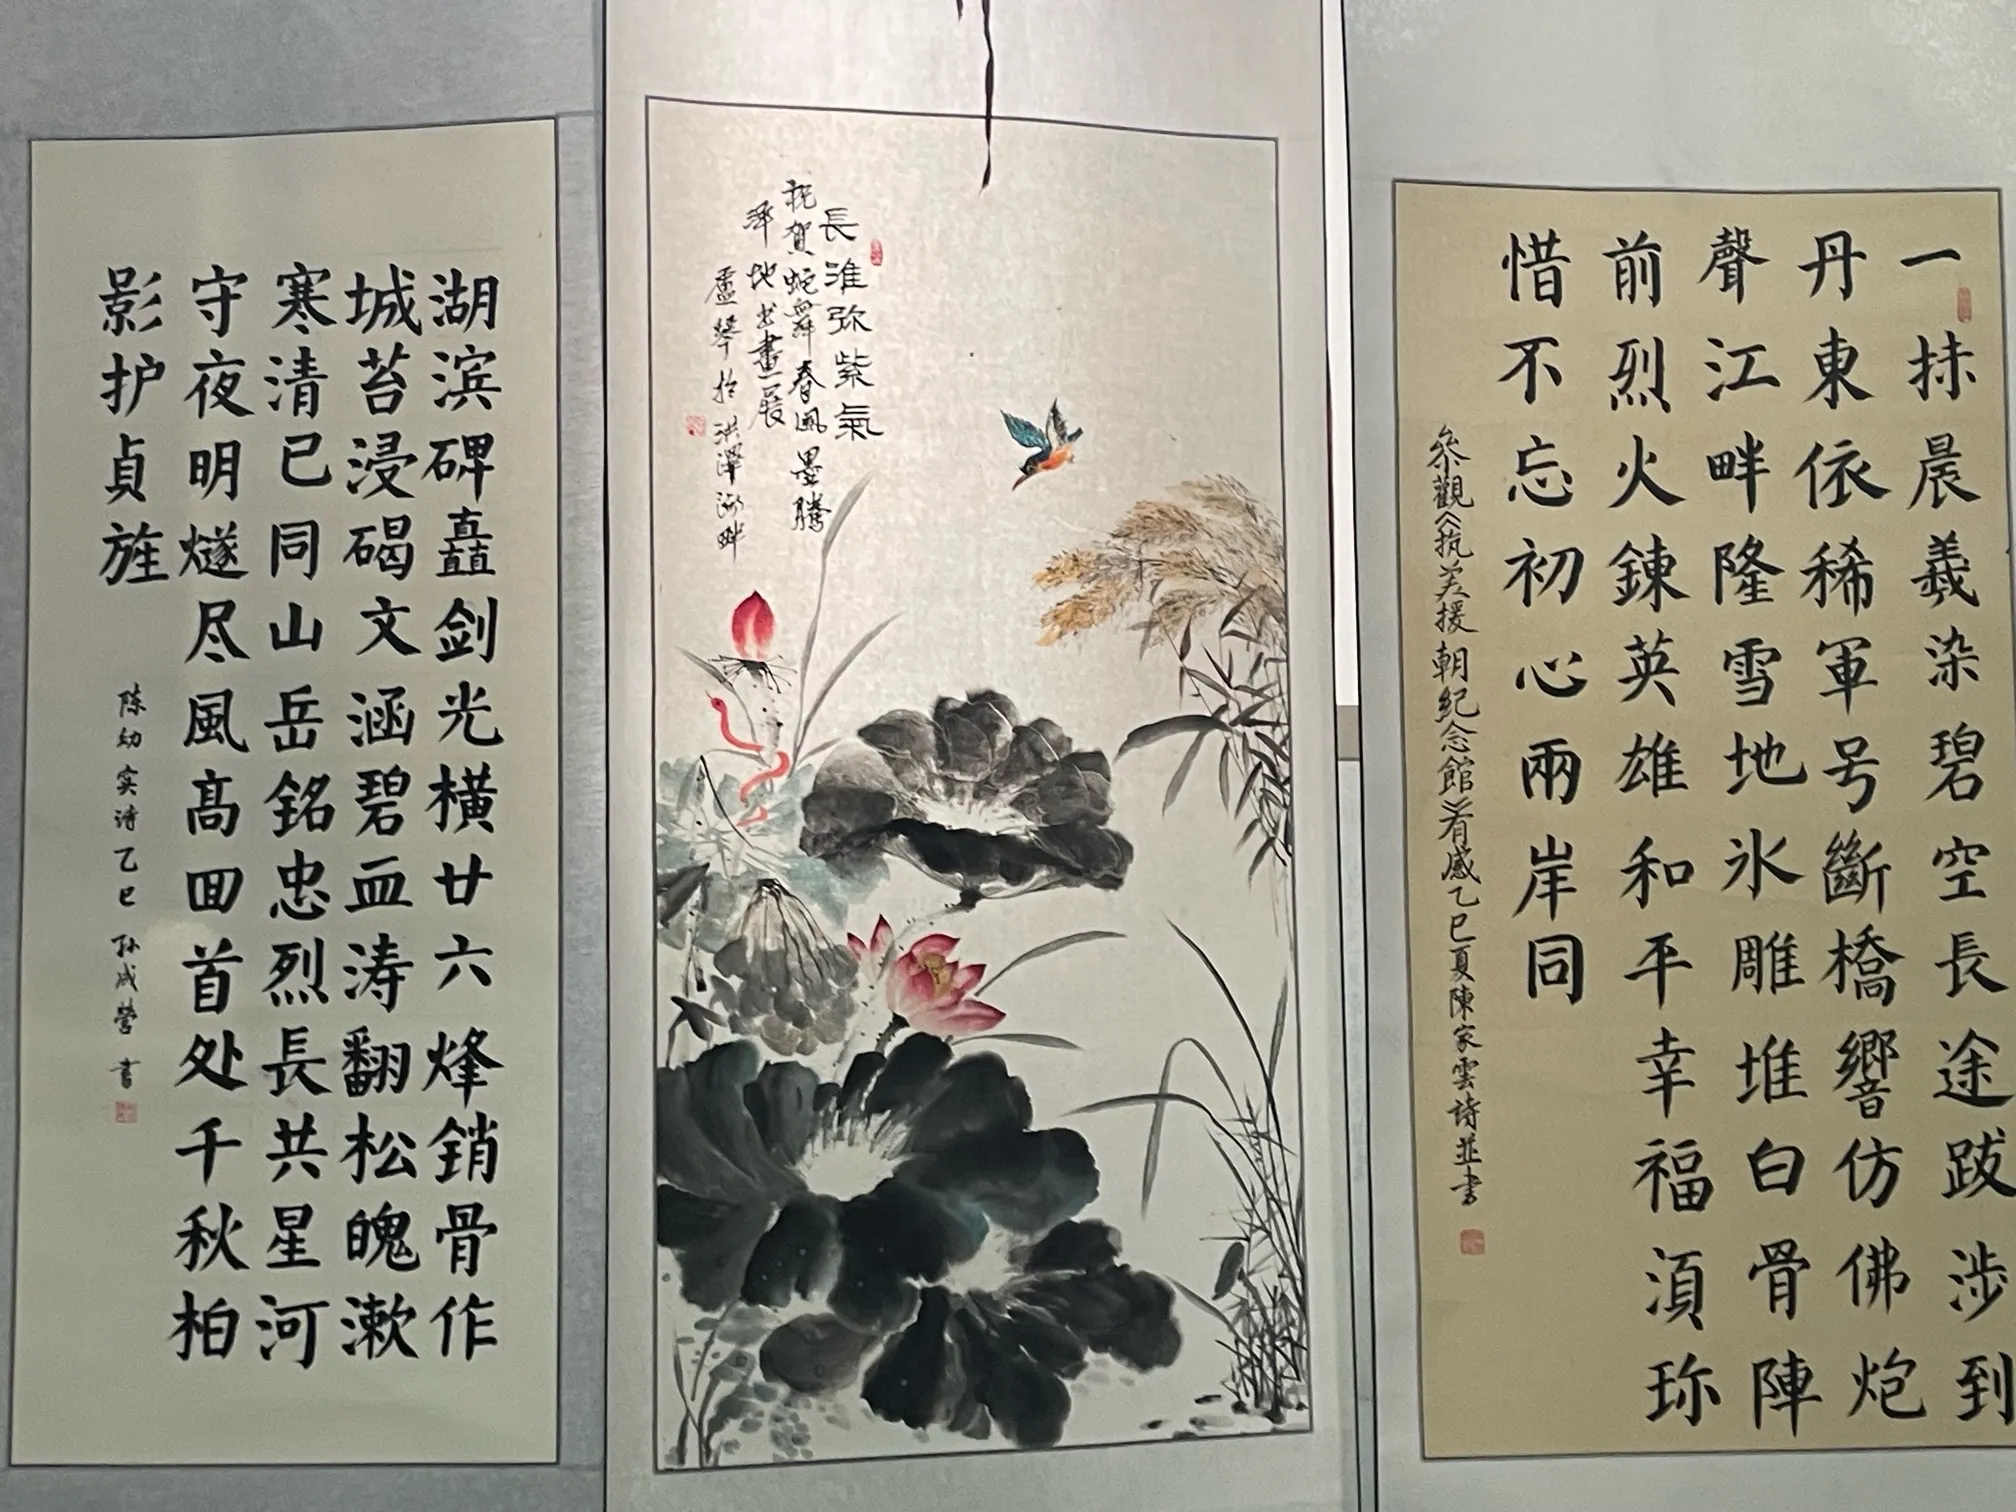 一抹晨羲染碧空長途跋涉到
丹東依稀軍号斷橋響仿佛炮
聲江畔隆雪地氷雕堆白骨陣
前烈火鍊英雄和平幸福須珎
惜不忘初心兩岸同
參觀《抗美援朝紀念館》有感乙巳夏陳家雲詩並書
長淮弥紫氣
祝賀蛇舞春風墨騰
澤地书畫展
盧琴於洪澤湖畔
湖滨碑矗剑光横廿六烽銷骨作
城苔浸碣文涵碧血涛翻松魄漱
寒清已同山岳銘忠烈長共星河
守夜明燧尽風髙回首处千秋柏
影护貞旌
陈幼实诗乙巳孙成营書